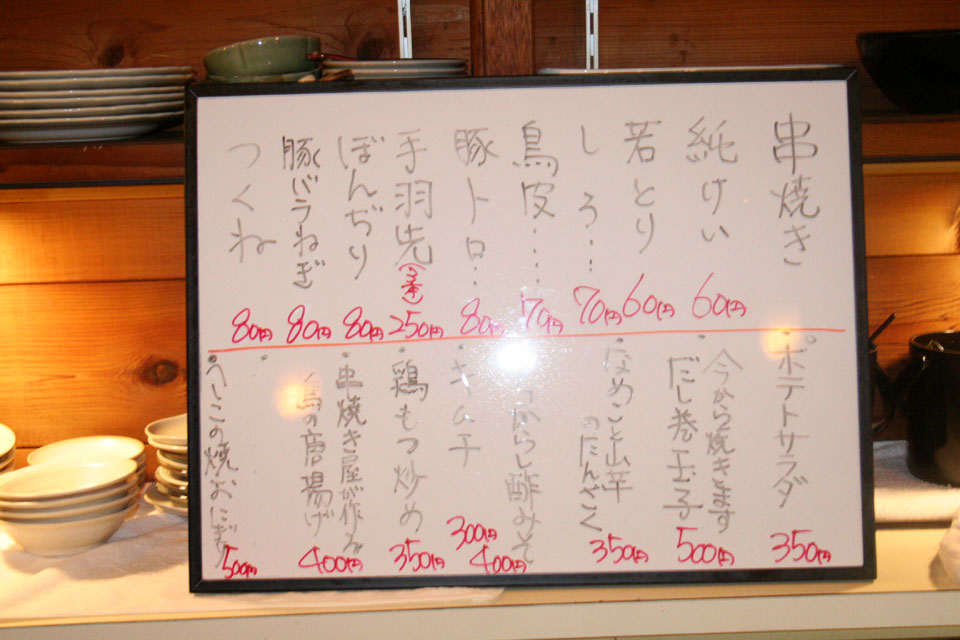 串焼き
純けい 60円
若とり 60円
しろ… 70円
鳥皮…… 70円
豚トロ… 80円
手羽先(3本) 250円
ぼんぢり 80円
豚バラねぎ 80円
つくね 80円
・ポテトサラダ 350円
・今から焼きます
だし巻玉子 500円
・なめこと山芋
のたんざく 350円
からし酢みそ 400円
・キムチ 300円
・鶏もつ炒め 350円
・串焼き屋が作る
鳥の唐揚げ 400円
の焼おにぎり 500円